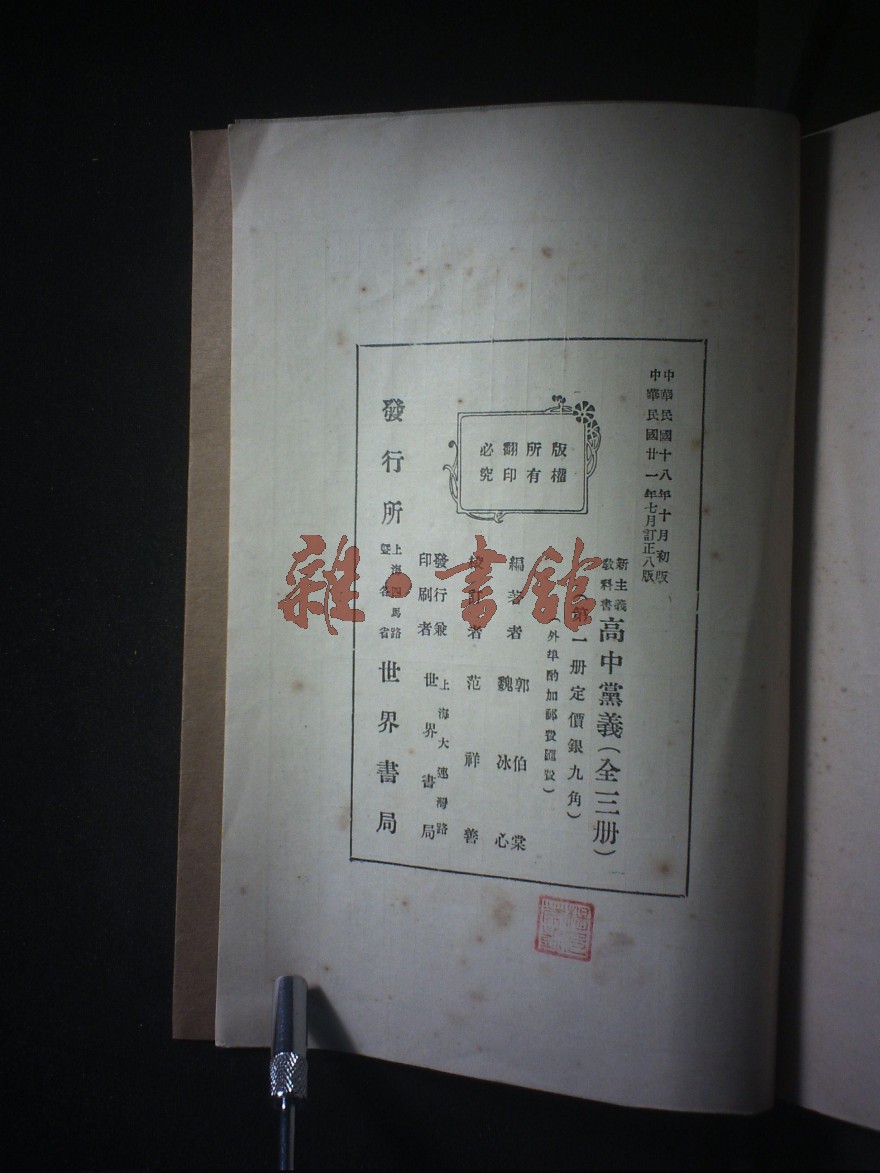 中華民國十八年十月初版
中華民國廿一年七月訂正八版
新主義
教科書
高中黨義(全三册)
(第一册定價銀九角)
(外埠酌加郵費匯費)
版權
所有
翻印
必究
編著者
郭伯棠
魏冰心
校訂者 范祥善
發行兼
印刷者
上海大連灣路
世界書局
發行所
上海四馬路
暨各省
世界書局
雜·書館